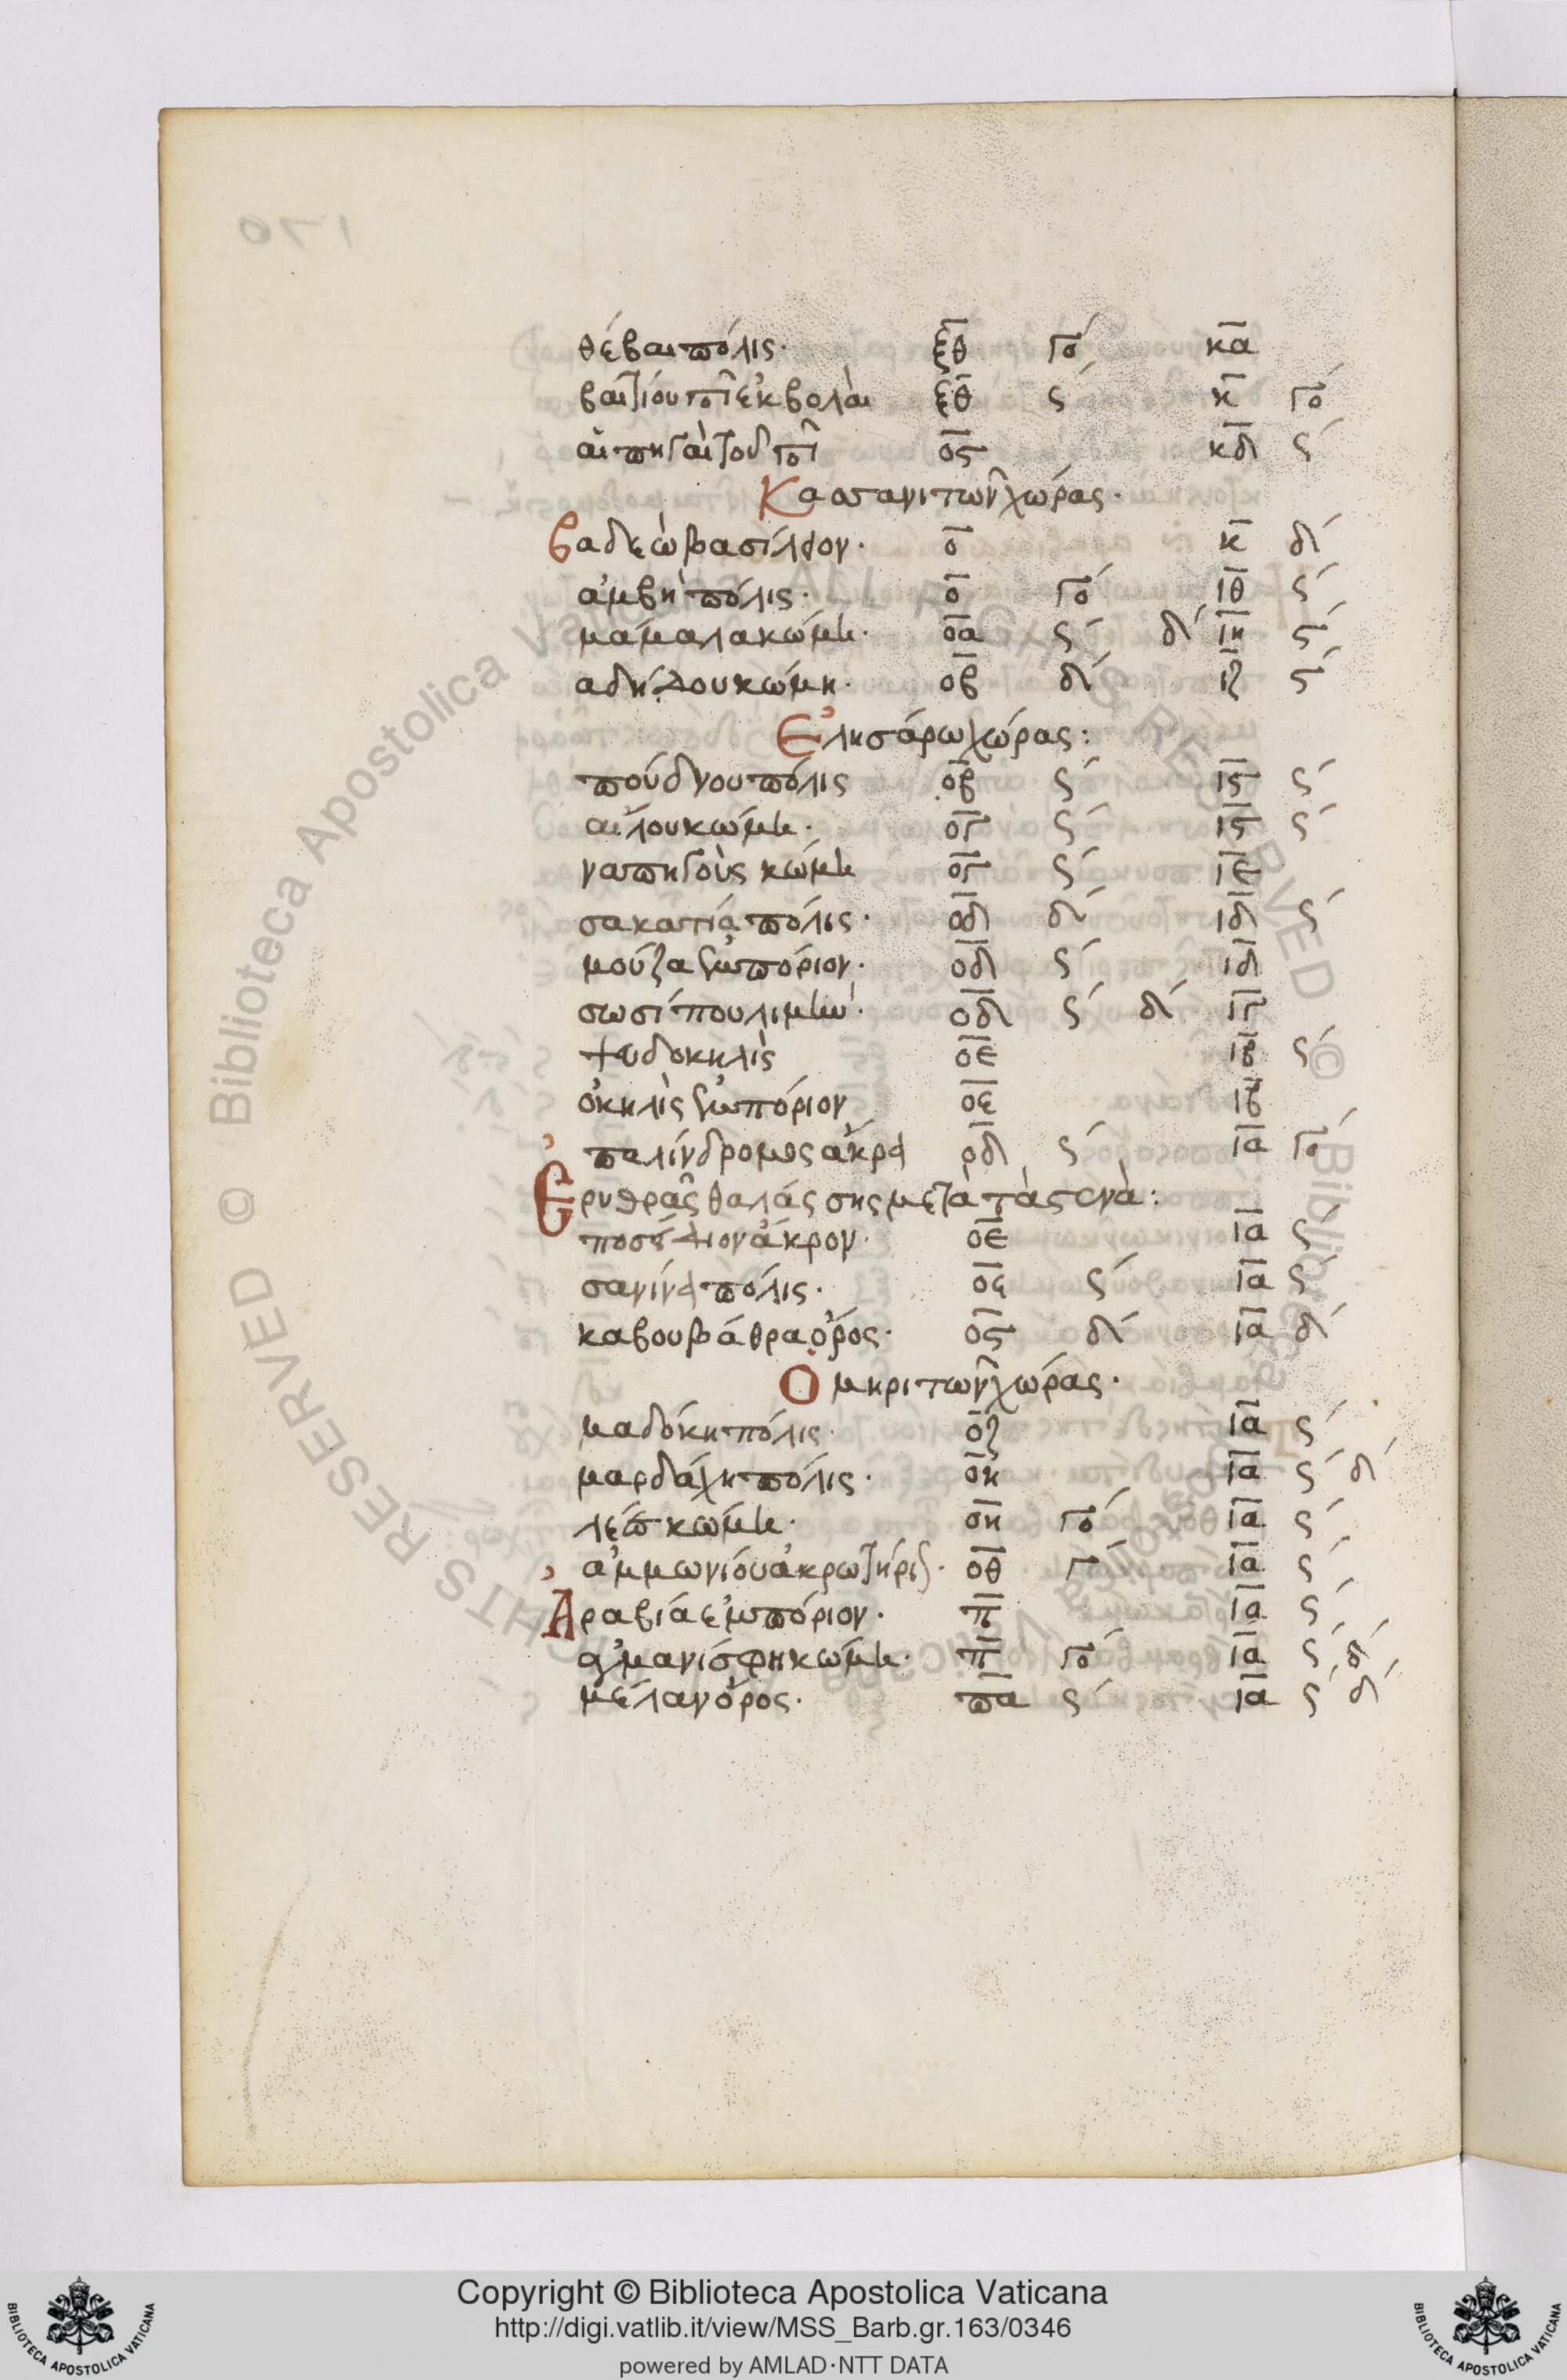 170
θέβαι πόλις· ξθ γο΄ κα
βαιτίου ποτ ἐκβολαὶ ξθ ς΄ κ γο΄
αἱ πηγαὶ τοῦ ποτ ος κδ ς΄
Κασσανιτῶν χώρας·
βαδεὼ βασίλειον· ο κ δ΄
ἀμβὴ πόλις· ο γο΄ ιθ ς΄
μάμαλα κώμη· οα ς΄ δ΄ ιη ς΄
αδήδου κώμη· οβ δ΄ ιζ ς΄
Ἐλησάρω χώρας:
πούδνου πόλις οβ ς΄ ις ς΄
αἴλου κώμη· ογ ς΄ ις ς΄
ναπηγοὺς κώμη ογ ς΄ ιε
σακατία πόλις· οδ δ΄ ιδ ς΄
μούζα ἐμπόριον· οδ ς΄ ιδ
σωσίππου λιμὴν· οδ ς΄ δ΄ ιγ
ψευδοκηλὶς οε ιβ ς΄
ὀκηλὶς ἐμπόριον οε ιβ
παλίνδρομος ἄκρα οδ ς΄ ια γο΄
Ἐρυθρᾶς θαλάσσης μετὰ τὰ στενὰ:
ποσείδιον ἄκρον· οε ια ς΄
σανίνα πόλις· οε ς΄ ια ς΄
καβουβάθρα ὄρος· ος δ΄ ια δ΄
Ὁμηριτῶν χώρας·
μαδόκη πόλις· οζ ια ς΄
μαρδάχη πόλις· οη ια ς΄ δ΄
λέεσ κώμη· οη γο΄ ια ς΄
ἀμμωνίου ἀκρωτήρι· οθ γ΄ ια ς΄
Ἀραβία ἐμπόριον· π ια ς΄
ἀγμανίσφη κώμη· π γο΄ ια ς΄ δ΄
μέλαν ὄρος· πα ς΄ ια ς΄ δ΄
Copyright © Biblioteca Apostolica Vaticana
http://digi.vatlib.it/view/MSS_Barb.gr.163/0346
powered by AMLAD·NTT DATA